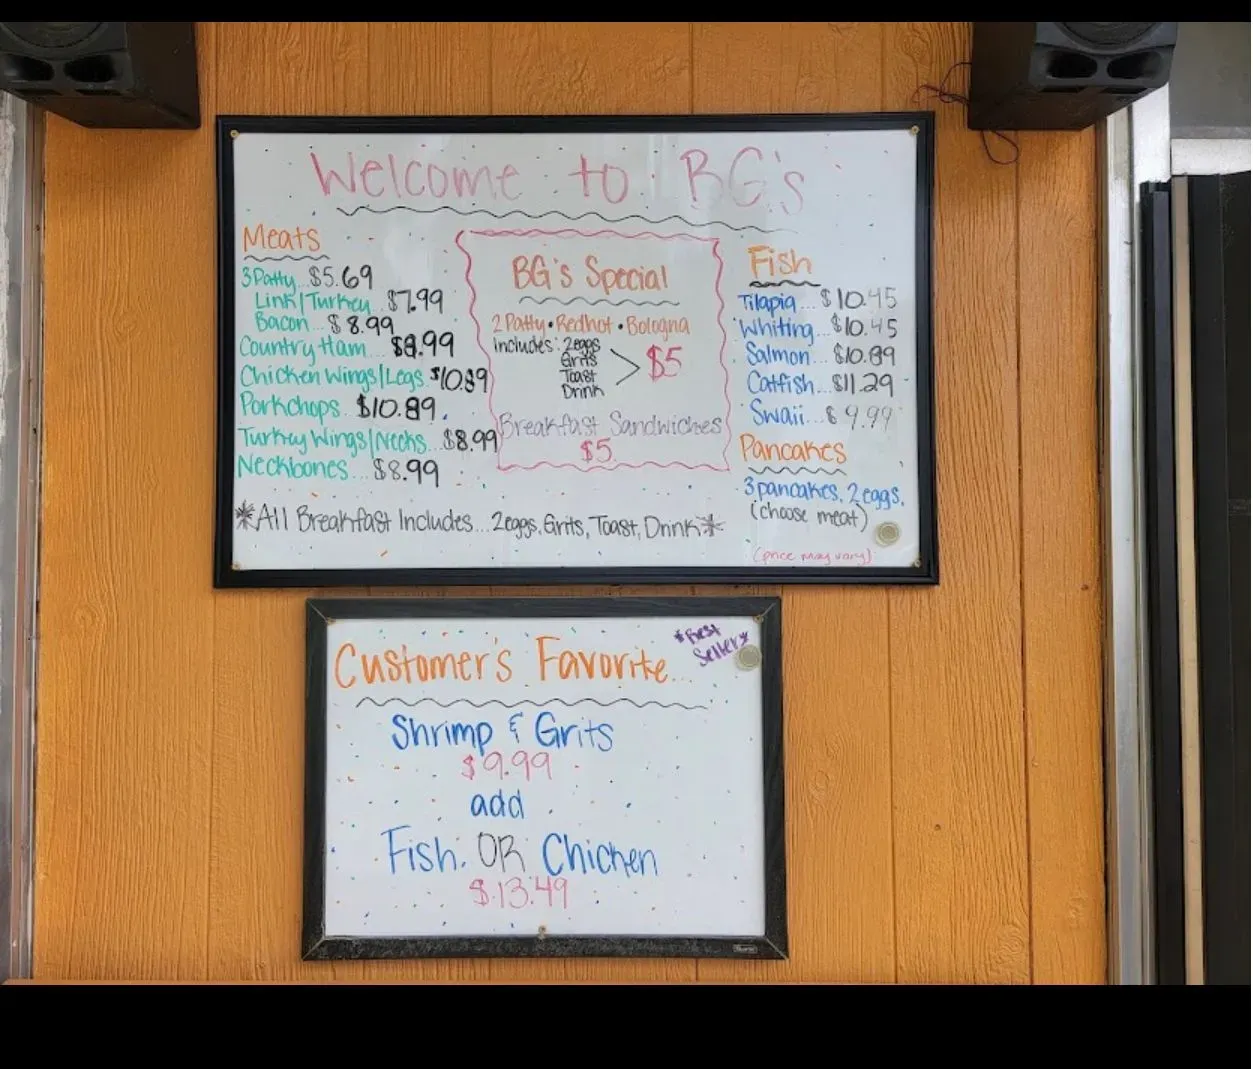 Welcome to BG's
Meats
3 Patty...$5.69
Link/Turkey...$7.99
Bacon...$8.99
Country Ham...$8.99
Chicken Wings/Legs $10.89
Porkchops...$10.89
Turkey Wings/Necks...$8.99
Neckbones...$8.99
BG's Special
2 Patty • Redhot • Bologna
includes: 2eggs
Grits
Toast
Drink
> $5
Breakfast Sandwiches
$5
Fish
Tilapia...$10.45
Whiting...$10.45
Salmon...$10.89
Catfish...$11.29
Swaii...$9.99
Pancakes
3 pancakes, 2 eggs,
(choose meat)
(price may vary)
*All Breakfast Includes...2eggs, Grits, Toast, Drink*
Customer's Favorite...
*Best
Seller*
Shrimp & Grits
$9.99
add
Fish. OR Chicken
$13.49